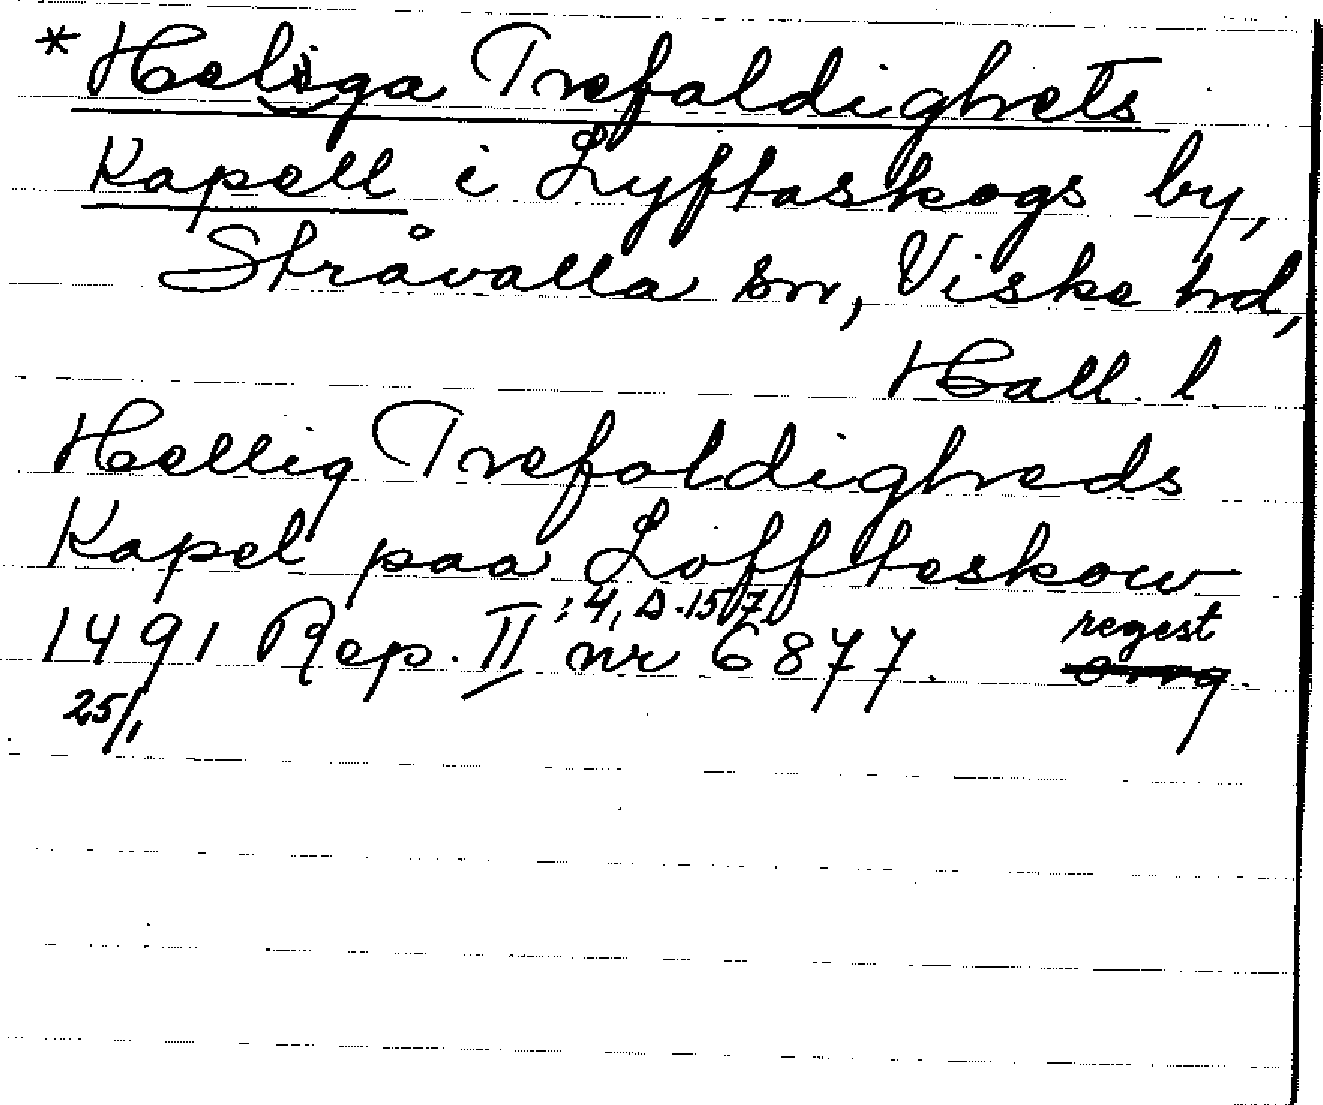 *Heliga Trefaldighets
Kapell i Lyftaskogs by,
Stråvalla sn, Viske hd,
Hall. l.
Hellig Trefoldigheds
Kapel paa Loffteskow
1491 Rep. II :4, D. 157, nr 6877. regest
25/1